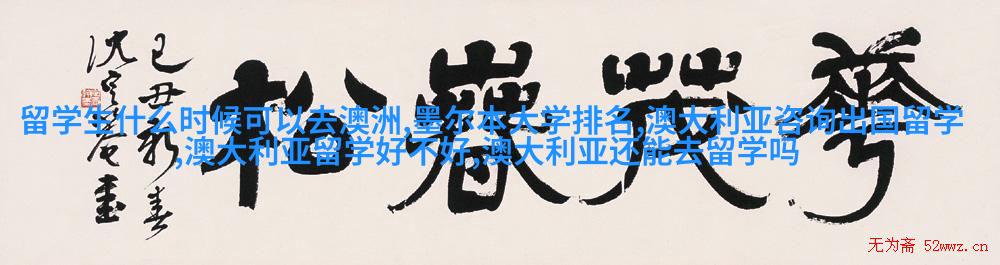 華茂春松
己丑新春
沈定庵書
留学生什么时候可以去澳洲,墨尔本大学排名,澳大利亚咨询出国留学
,澳大利亚留学好不好,澳大利亚还能去留学吗
无为斋 52wwz.cn